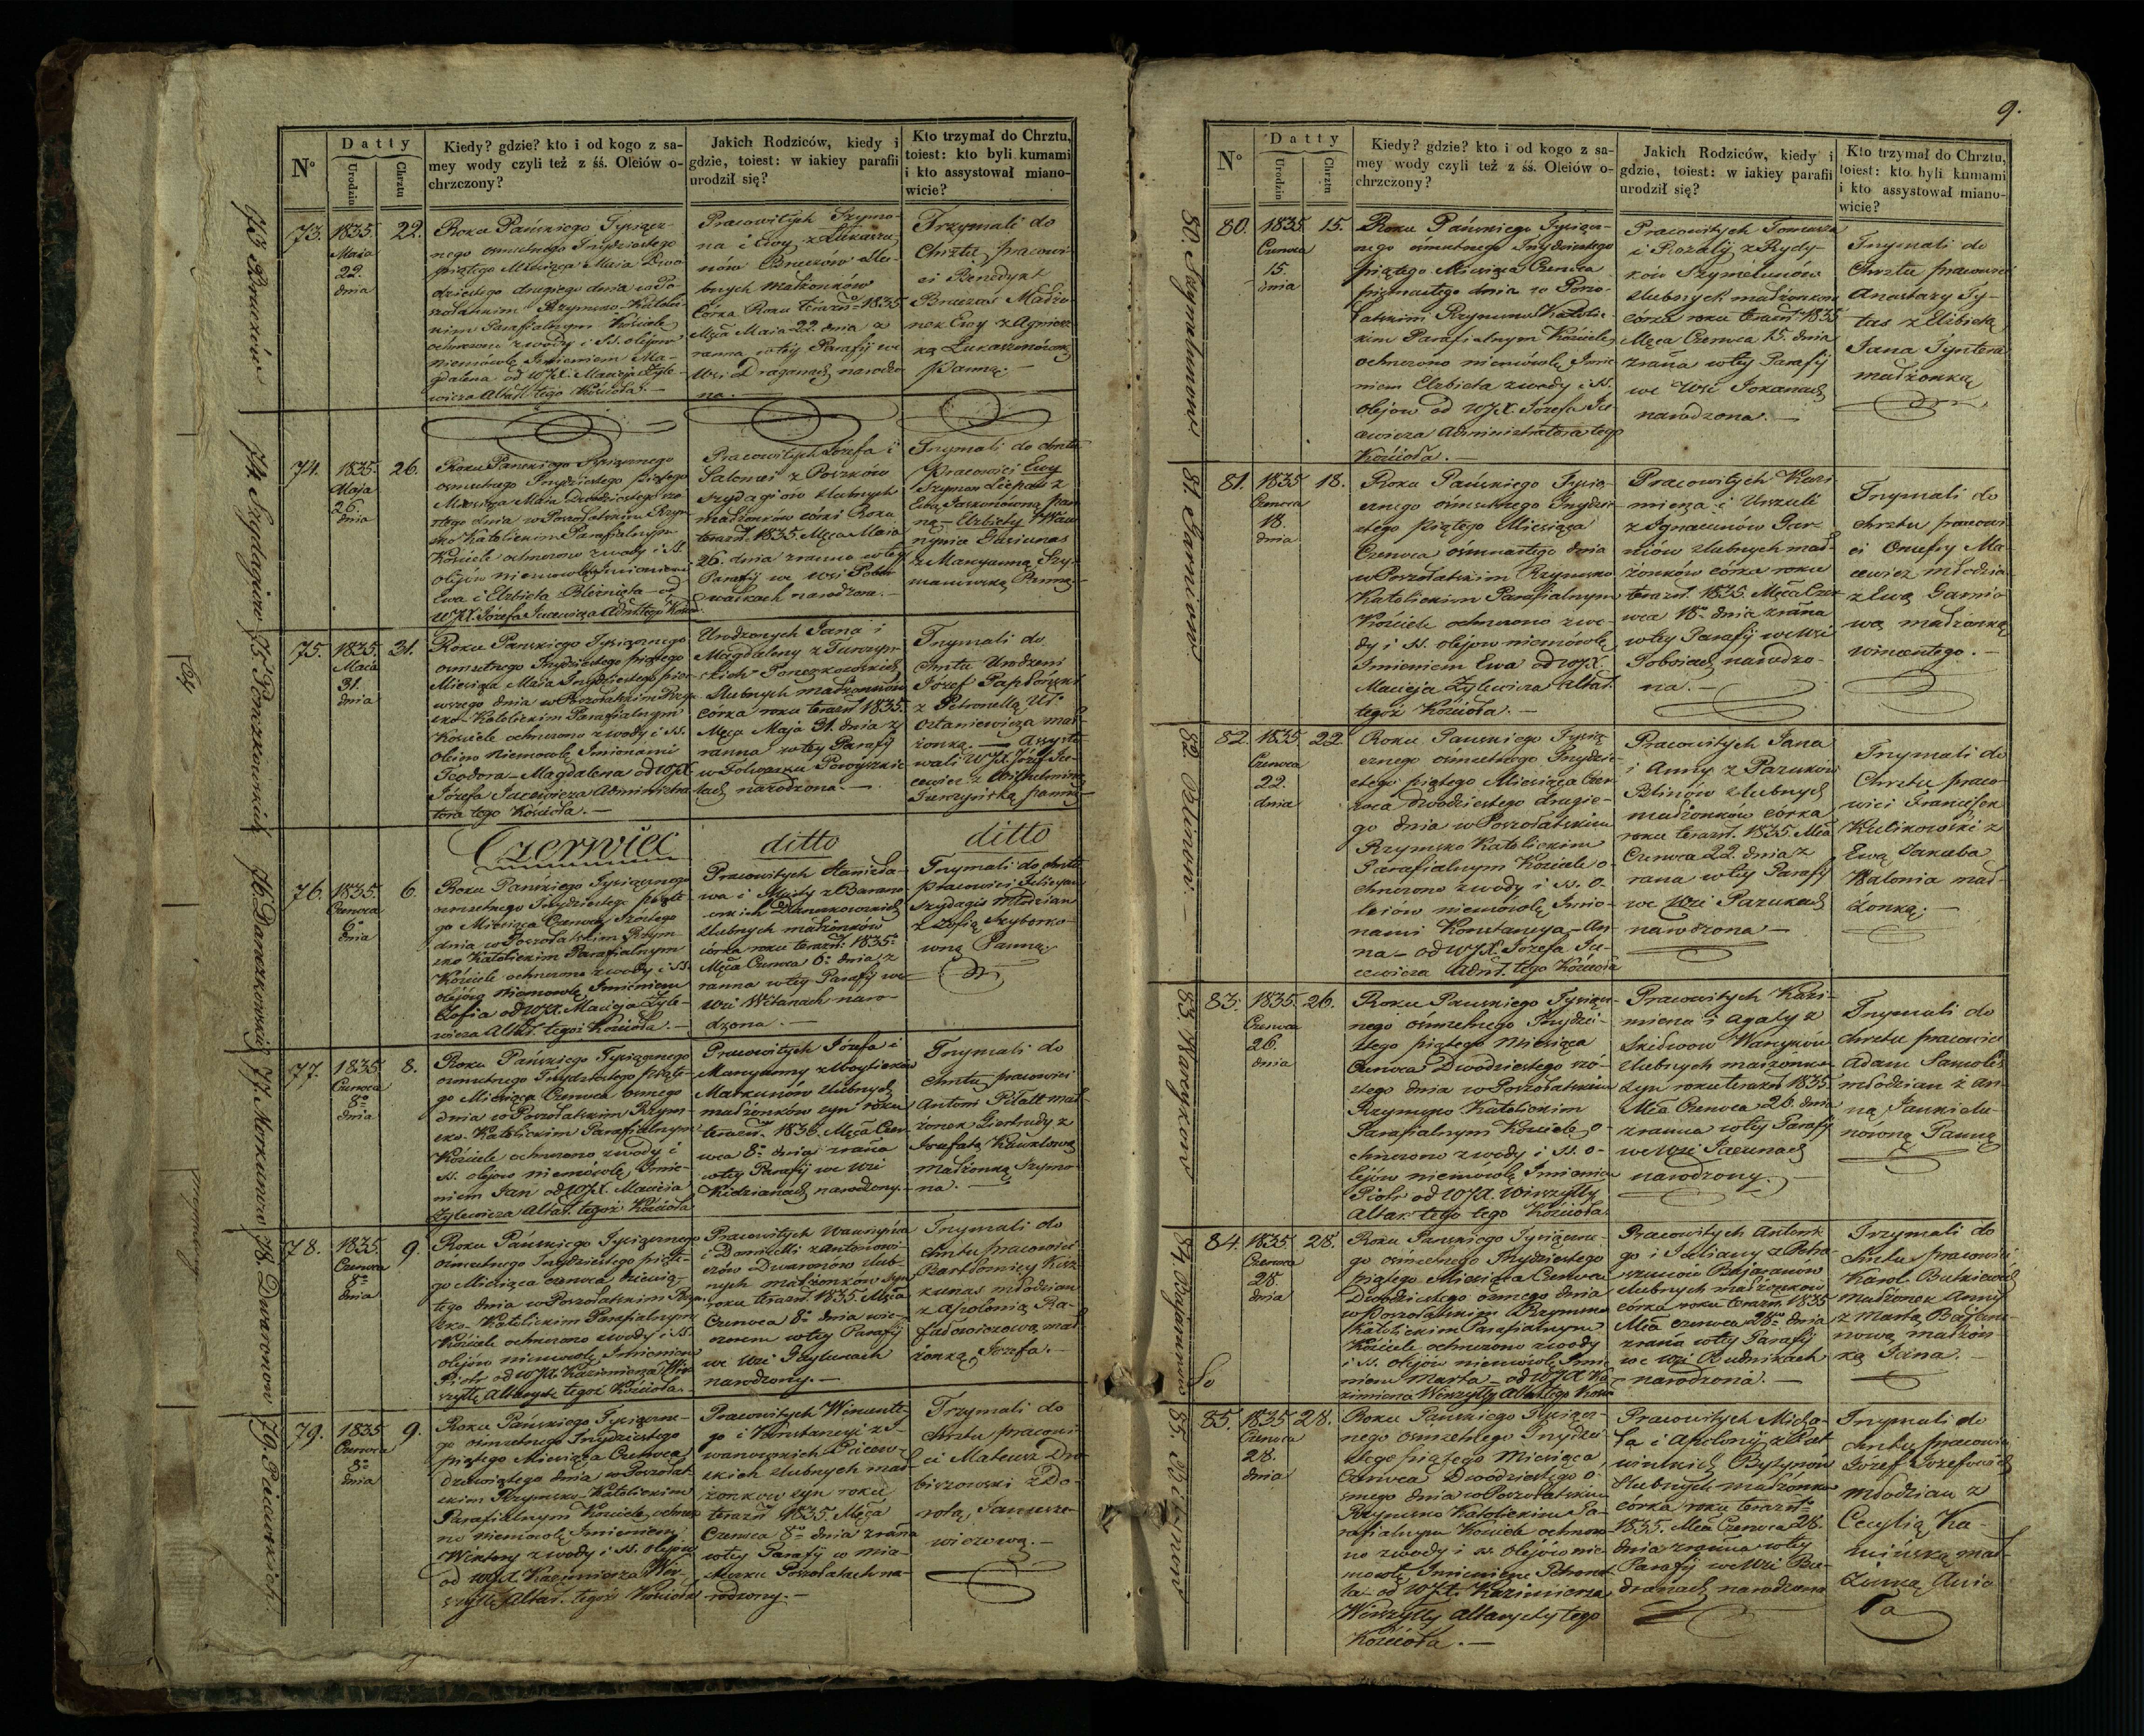 9.
Nº
Datty
Urodzin
Chrztu
Kiedy? gdzie? kto i od kogo z sa-
mey wody czyli też z śś. Oleiów o-
chrzczony?
Jakich Rodziców, kiedy i
gdzie, toiest: w iakiey parafii
urodził się?
Kto trzymał do Chrztu,
toiest: kto byli kumami
i kto assystował miano-
wicie?
73.
1835.
Maia
22.
dnia
22.
Roku Pańskiego Tysiącz-
nego osmsetnego Trzydziestego
piątego Miesiąca Maia Dwu-
dziestego drugiego dnia w Po-
szołatskim Rzymsko-Katolic-
kim Parafialnym Kościele
ochrzczono z wody i SS. olejow
niemowlę Imieniem Ma-
gdalena od WJX. Macieja Żyle-
wicza Altar. tego Kościoła.—
Pracowitych Szymo-
na i Ewy z Łukaszu
nów
bnych małżonków
córka Roku terazn. 1835
Mca Maia 22. dnia z
ranna w tey Parafij we
Wsi Draganach narodzo-
na.—
Trzymali do
Chrztu pracowi
ci Benedykt
Małżo
nek Ewy z Agniesz
ką Łukaszunówną
Panną.—
74.
1835.
Maja
26.
dnia
26.
Roku Pańskiego Tysiącznego
osmsetnego Trzydziestego piątego
Miesiąca Maia Dwudziestego szo-
stego dnia w Poszołatskim Rzym-
sko Katolickim Parafialnym
Kościele ochrzczono z wody i SS.
olejów niemowlęta Imionami
Ewa i Elżbieta Bliźnięta od
WJX. Józefa Jucewicza Adm. tego Kościoła
Pracowitych Józefa i
Salomei z Poszków
Szydagiow ślubnych
małżonków córki Roku
terazn. 1835. Mca Maia
26. dnia z ranna w tey
Parafij we Wsi
narodzone.—
Trzymali do chrztu
Pracowici Ewy
Szymon z
Ewą Jaskonówną pan
ną — Elżbiety Waw
rzynia Gasiunas
z Maryanną Szy-
manowską Panną.—
75.
1835.
Maia
31.
dnia
31.
Roku Pańskiego Tysiącznego
osmsetnego Trzydziestego piątego
Miesiąca Maia Trzydziestego pier-
wszego dnia w Poszołatskim Rzym-
sko-Katolickim Parafialnym
Kościele ochrzczono z wody i SS.
Oleiow Niemowlę Imionami
Teodora-Magdalena od WJX.
Józefa Jucewicza Administra-
tora tego Kościoła.—
Urodzonych Jana i
Magdaleny z Turczyn-
skich Ponczkowskich
ślubnych małżonków
córka roku terazn. 1835.
Mca Maja 31. dnia z
ranna w tey Parafij
w Folwarku
narodzona.—
Trzymali do
chrztu Urodzeni
Józef
z Petronellą
mał-
żonką.— Assysto
wali WJX. Józef Ju-
cewicz z Wilhelminą
Turczyńską panną.—
Czerwiec
ditto
ditto
76.
1835.
Czerwca
6º
dnia
6.
Roku Pańskiego Tysiącznego
osmsetnego Trzydziestego piąte-
go Miesiąca Czerwca szostego
dnia w Poszołatskim Rzym-
sko Katolickim Parafialnym
Kościele ochrzczono z wody i SS.
olejów Niemowlę Imieniem
Zofia od WJX. Macieja Żyle-
wicza Altar. tegoż Kościoła.—
Pracowitych Stanisła-
wa i z Barano-
wskich Daraszkowskich
ślubnych małżonków
córka roku terazn. 1835.
Mca Czerwca 6º dnia z
ranna w tey Parafij we
Wsi Witanach naro-
dzona.—
Trzymali do chrztu
Pracowici Julicjan
Szydagis Młodzian
z Zofią Szyborko-
wną Panną.
77.
1835
Czerwca
8º
dnia
8.
Roku Pańskiego Tysiącznego
osmsetnego Trzydziestego piąte-
go Miesiąca Czerwca osmego
dnia w Poszołatskim Rzym-
sko-Katolickim Parafialnym
Kościele ochrzczono z wody i
SS. olejow niemówlę Imie-
niem Jan od WJX. Macieia
Żylewicza Altar. tegoż Kościoła
Pracowitych Józefa i
Maryanny z
Markunów ślubnych
małżonków syn roku
terazn. 1835. Mca Czer-
wca 8º dnia zrana
w tey Parafij we Wsi
Kidzianach narodzony.—
Trzymali do
chrztu pracowici
Antoni Pilatt mał
żonek Giertrudy z
Jozefatą
małżonką Szymo-
na.—
78.
1835.
Czerwca
8º
dnia
9.
Roku Pańskiego Tysiącznego
osmsetnego Trzydziestego piąte-
go Miesiąca czerwca dziewią-
tego dnia w Poszołatskim Rzym-
sko-Katolickim Parafialnym
Kościele ochrzczono z wody i SS.
olejów niemowlę Imieniem
Piotr od WJX. Kazimierza Wier-
szyłły Altarysty tegoż Kościoła.
Pracowitych Wawrzyńca
i Domicelli z Antonowi-
czów Dwaronów ślub-
nych małżonków syn
roku terazn. 1835. Mca
Czerwca 8º dnia wie-
czorem w tey Parafij
we Wsi
narodzony.—
Trzymali do
chrztu pracowici
Bartłomiey
kunas młodzian
z Apolonią Ra-
fałowiczową mał
żonką Jozefa.—
79.
1835
Czerwca
8º
dnia
9.
Roku Pańskiego Tysiączne-
go osmsetnego Trzydziestego
piątego Miesiąca Czerwca
dziewiątego dnia w Poszołat-
skim Rzymsko-Katolickim
Parafialnym Kościele ochrzczo
no niemowlę Imieniem
Wiktory z wody i SS. olejów
od WJX. Kazimierza Wier-
szyłły Altar. tegoż Kościoła
Pracowitych Wincente-
go i Konstancyi z I-
wanowskich Piecew-
skich ślubnych mał-
żonkow syn roku
terazn. 1835. Mca
Czerwca 8º dnia zrana
w tey Parafij w Mia-
steczku Poszołatach na-
rodzony.—
Trzymali do
chrztu pracowi
ci Mateusz Dro
biszowski z Do-
rotą
wiczową.—
73 Bruzów
74 Szydagiow
75 Ponczkowskich
76. Daraszkowskich
77. Markunow
78. Dwaronow
79. Piecewskich.
Nº
Datty
Urodzin
Chrztu
Kiedy? gdzie? kto i od kogo z sa-
mey wody czyli też z śś. Oleiów o-
chrzczony?
Jakich Rodziców, kiedy i
gdzie, toiest: w iakiey parafii
urodził się?
Kto trzymał do Chrztu,
toiest: kto byli kumami
i kto assystował miano-
wicie?
80.
1835
Czerwca
15.
dnia
15.
Roku Pańskiego Tysiącz-
nego ósmsetnego Trzydziestego
piątego Miesiąca Czerwca
piętnastego dnia w Poszo-
łatskim Rzymsko Katolic-
kim Parafialnym Kościele
ochrzczono niemówlę Imie
niem Elżbieta z wody i SS.
olejow od WJX. Józefa Ju-
cewicza Administratora tego
Kościoła.—
Pracowitych Tomasza
i Rozalij z Rydy-
ków Szymelunów
ślubnych małżonków
córka roku terazn. 1835
Mca Czerwca 15. dnia
zrana w tey Parafij
we Wsi Jokanach
narodzona.—
Trzymali do
Chrztu pracowici
Anastazy Ty-
tas z Elżbietą
Jana Tyntera
małżonką
81.
1835
Czerwca
18.
dnia
18.
Roku Pańskiego Tysią-
cznego ósmsetnego Trzydzie
stego piątego Miesiąca
Czerwca ósmnastego dnia
w Poszołatskim Rzymsko
Katolickim Parafialnym
Kościele ochrzczono z wo-
dy i SS. olejow niemówlę
Imieniem Ewa od WJX.
Macieja Żylewicza Altar.
tegoż Kościoła.—
Pracowitych Kazi
mierza i Urszuli
z Ignacunów Gar-
niów ślubnych mał-
żonków córka roku
terazn. 1835. Mca Czer
wca 18º dnia zrana
w tey Parafij we Wsi
Poboiach narodzo-
na.—
Trzymali do
chrztu pracowi
ci Onufry Ma-
cewicz młodzian
z Ewą Garnio
wą małżonką
Wincentego.—
82.
1835.
Czerwca
22.
dnia
22.
Roku Pańskiego Tysią
cznego ósmsetnego Trzydzie-
stego piątego Miesiąca Czer-
wca Dwudziestego drugie-
go dnia w Poszołatskim
Rzymsko Katolickim
Parafialnym Kościele o-
chrzczono z wody i SS. o-
lejów niemówlę Imio-
nami Konstancya-An-
na — od WJX. Józefa Ju-
cewicza Adm. tego Kościoła
Pracowitych Jana
i Anny z Pazuków
Blinów ślubnych
małżonków córka
roku terazn. 1835. Mca
Czerwca 22. dnia z
rana w tey Parafij
we Wsi Pazukach
narodzona—
Trzymali do
Chrztu praco-
wici Franciszek
Kulikowski z
Ewą Jakuba
mał-
żonką.—
83.
1835.
Czerwca
26.
dnia
26.
Roku Pańskiego Tysiącz-
nego ósmsetnego Trzydzie-
stego piątego Miesiąca
Czerwca Dwudziestego szó-
stego dnia w Poszołatskim
Rzymsko Katolickim
Parafialnym Kościele o-
chrzczono z wody i SS. o-
lejów niemówlę Imieniem
Piotr od WJX. Wierszyłły
Altar. tego tego Kościoła.
Pracowitych Kazi-
mierza i Agaty z
Warzyków
ślubnych małżonków
syn roku terazn. 1835.
Mca Czerwca 26. dnia
zranna w tey Parafij
we Wsi
narodzony.—
Trzymali do
chrztu pracowici
Adam
młodzian z An-
ną Jankielu-
nówną Panną
84.
1835.
Czerwca
28
dnia
28.
Roku Pańskiego Tysiączne-
go ósmsetnego Trzydziestego
piątego Miesiąca Czerwca
Dwudziestego osmego dnia
w Poszołatskim Rzymsko
Katolickim Parafialnym
Kościele ochrzczono z wody
i SS. olejów niemówlę Imie
niem Marta — od WJX Ka
zimierza Wierszyłły Altar. tego Kościoła
Pracowitych Antonie
go i Julianny z Petro-
szunów Bajorunów
ślubnych małżonków
córka roku terazn. 1835
Mca czerwca 28º dnia
zrana w tey Parafij
we Wsi Rudnikach
narodzona.—
Trzymali do
Chrztu pracowici
Karol Butkiewicz
Małżonek Anny
z Martą Bajoru-
nową małżon-
ką Jana.—
85.
1835
Czerwca
28.
dnia
28.
Roku Pańskiego Tysiącz-
nego ósmsetnego Trzydzie-
stego piątego Miesiąca
Czerwca Dwudziestego ó-
smego dnia w Poszołatskim
Rzymsko Katolickim Pa-
rafialnym Kościele ochrzczo-
no z wody i SS. olejów nie-
mowlę Imieniem Petronel
la — od WJX. Kazimierza
Wierszyłły Altarysty tego
Kościoła.—
Pracowitych Micha-
ła i Apolonij z
ślubnych małżonków
córka roku terazn.
1835. Mca Czerwca 28.
dnia zranna w tey
Parafij we Wsi Bu-
dranach narodzona
Trzymali do
chrztu pracowici
Józef Jozefowicz
młodzian z
Cecylią Ka-
mińską mał-
żonką Anio
ła
80. Szymelunow
81. Garniow
82. Blinow.—
83. Warzykow
84. Bajorunow